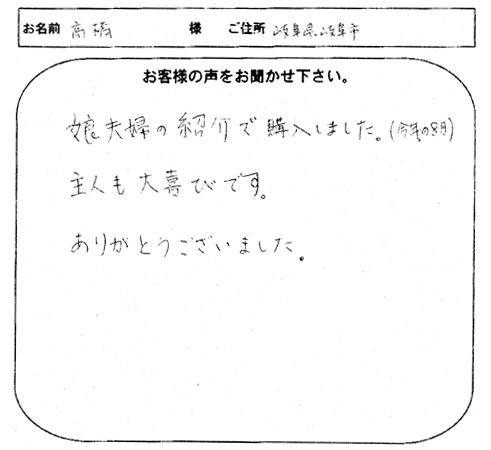 お名前 高橋 様 ご住所 岐阜県岐阜市
お客様の声をお聞かせ下さい。
娘夫婦の紹介で購入しました。(今年の8月)
主人も大喜びです。
ありがとうございました。